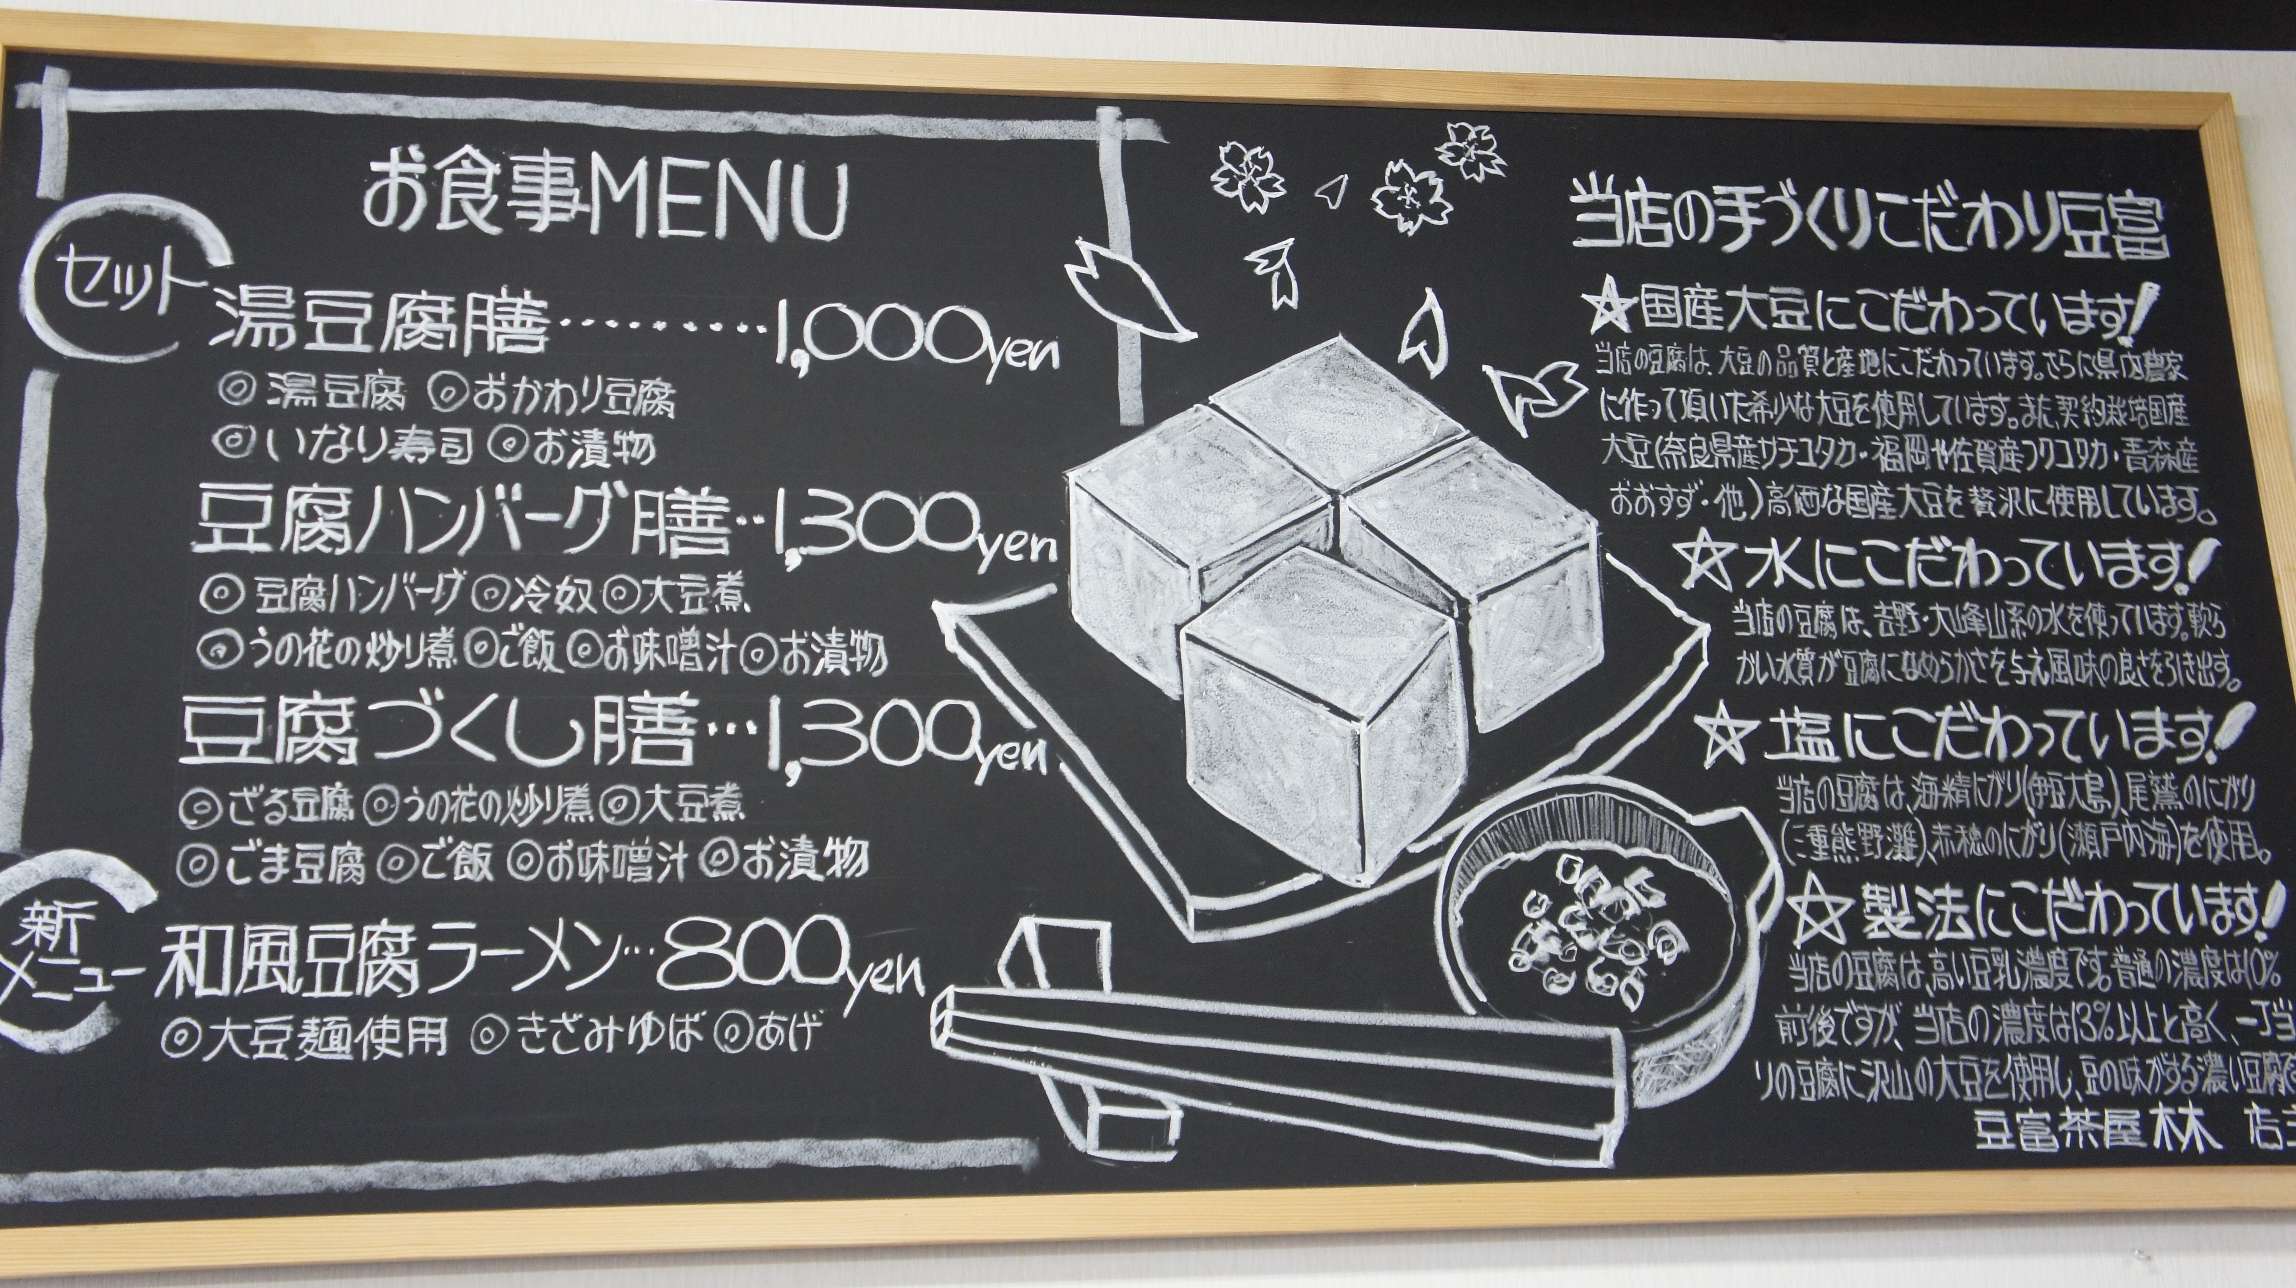 お食事MENU
セット
湯豆腐膳・・・・・・・・・・1,000yen
◎湯豆腐 ◎おかわり豆腐
◎いなり寿司 ◎お漬物
豆腐ハンバーグ膳・・1,300yen
◎豆腐ハンバーグ◎冷奴◎大豆煮
◎うの花の炒り煮◎ご飯◎お味噌汁◎お漬物
豆腐づくし膳・・・1,300yen
◎ざる豆腐◎うの花の炒り煮◎大豆煮
◎ごま豆腐◎ご飯◎お味噌汁◎お漬物
新
メニュー
和風豆腐ラーメン・・・800yen
◎大豆麺使用 ◎きざみゆば◎あげ
当店の手づくりこだわり豆富
☆国産大豆にこだわっています!
当店の豆腐は、大豆の品質と産地にこだわっています。さらに県内農家
に作って頂いた希少な大豆を使用しています。また契約栽培国産
大豆(奈良県産サチユタカ・福岡や佐賀産フクユタカ・青森産
おおすず・他)高価な国産大豆を贅沢に使用しています。
☆水にこだわっています!
当店の豆腐は、吉野・大峰山系の水を使っています。軟ら
かい水質が豆腐になめらかさを与え風味の良さを引き出す。
☆塩にこだわっています!
当店の豆腐は、海精にがり(伊豆大島)、尾鷲のにがり
(三重熊野灘)、赤穂のにがり(瀬戸内海)を使用。
☆製法にこだわっています!
当店の豆腐は、高い豆乳濃度です。普通の濃度は10%
前後ですが、当店の濃度は13%以上と高く、一丁当
りの豆腐に沢山の大豆を使用し、豆の味がする濃い豆腐
豆富茶屋 林 店